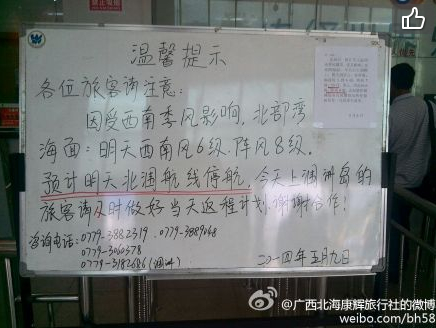 温馨提示
各位旅客请注意：
因受西南季风影响，北部湾
海面：明天西南风6级.阵风8级.
预计明天北涠航线停航，今天上涠洲岛的
旅客请及时做好当天返程计划.谢谢合作！
咨询电话：0779-3882319 . 0779-3889048
0779-3060378
0779-3182686
二〇一四年五月九日
@广西北海康辉旅行社的微博
weibo.com/bh58